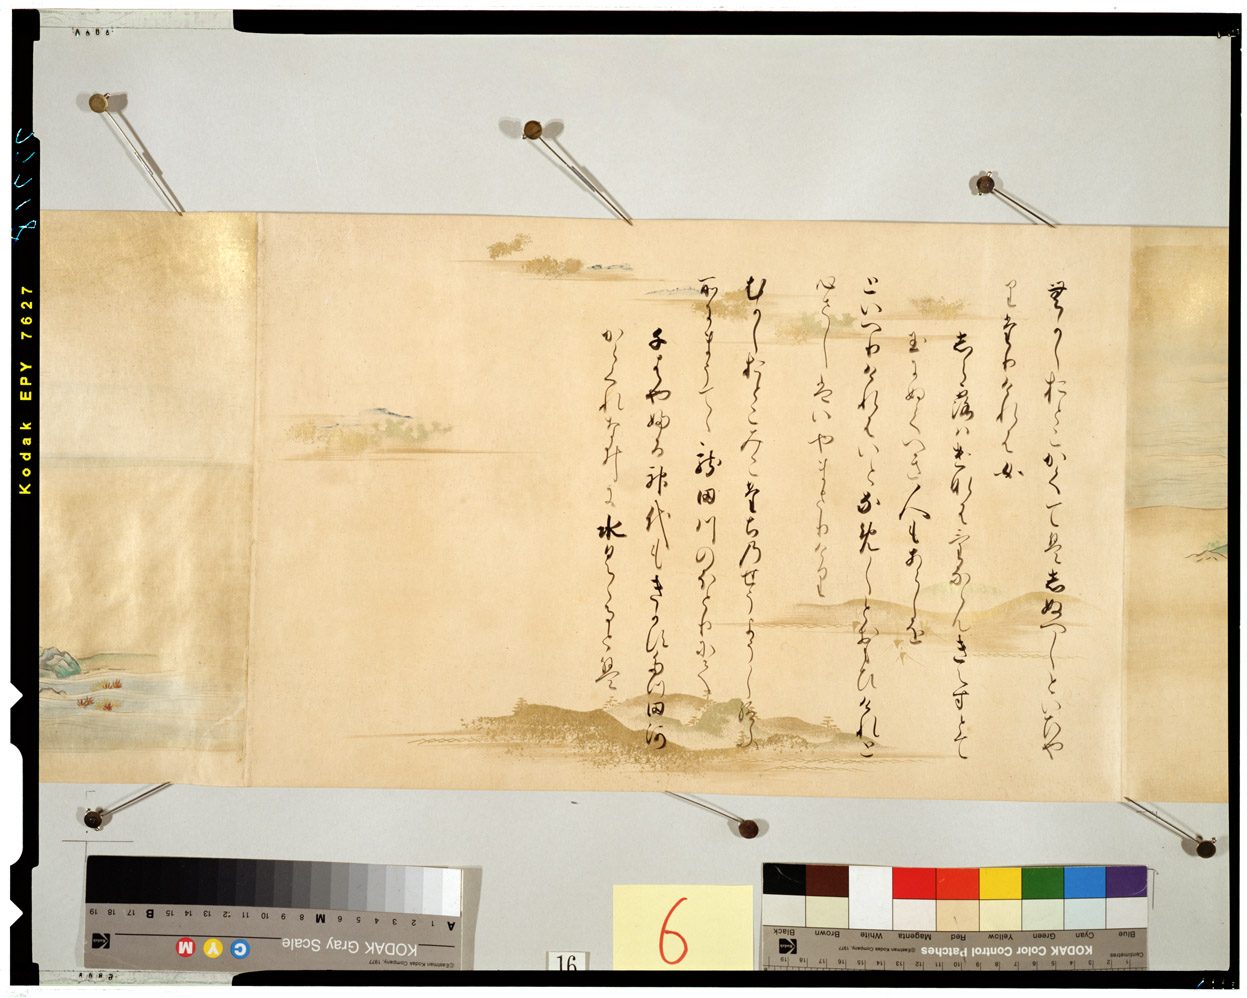 むかしおとこかくてはしぬへしといひや
りたりけれは女
しら露はけなはけなゝんきえすとて
玉にぬくへき人もあらしを
といへりけれはいとなめしとおもひけれと
心さしはいやまさりけり
むかしおとこみこたちのせうえうし給ふ
所にまうてゝ龍田川のほとりにて
千はやふる神代もきかすたつ田河
からくれなゐに水くゝるとは
Kodak EPY 7627
6
16
KODAK Gray Scale
C Y M
A 1 2 3 4 5 6 M 8 9 10 11 12 13 14 15 B 17 18 19
©Eastman Kodak Company, 1977
KODAK Color Control Patches
©Eastman Kodak Company, 1977
Blue Cyan Green Yellow Red Magenta White Brown Black
Centimetres